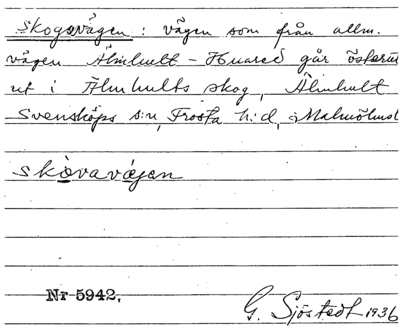 Skogsvägen: vägen som från allm.
vägen Älmhult - Huared går österut
ut i Älmhults skog, Älmhult
Svensköps s:n, Frosta h:d,
skòvavä́jen
Nr 5942.
G. Sjöstedt 1936